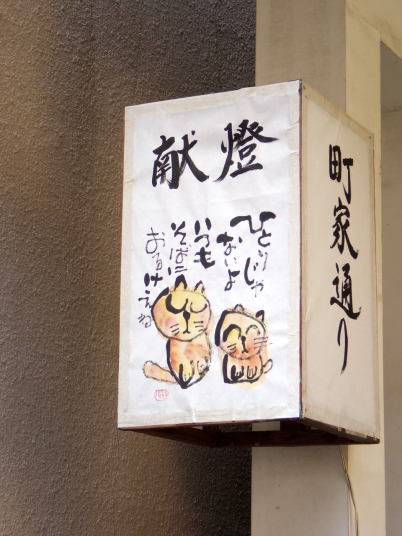 献燈
ひとりじゃ
ないよ
いつも
そばに
おるけえね
町家通り